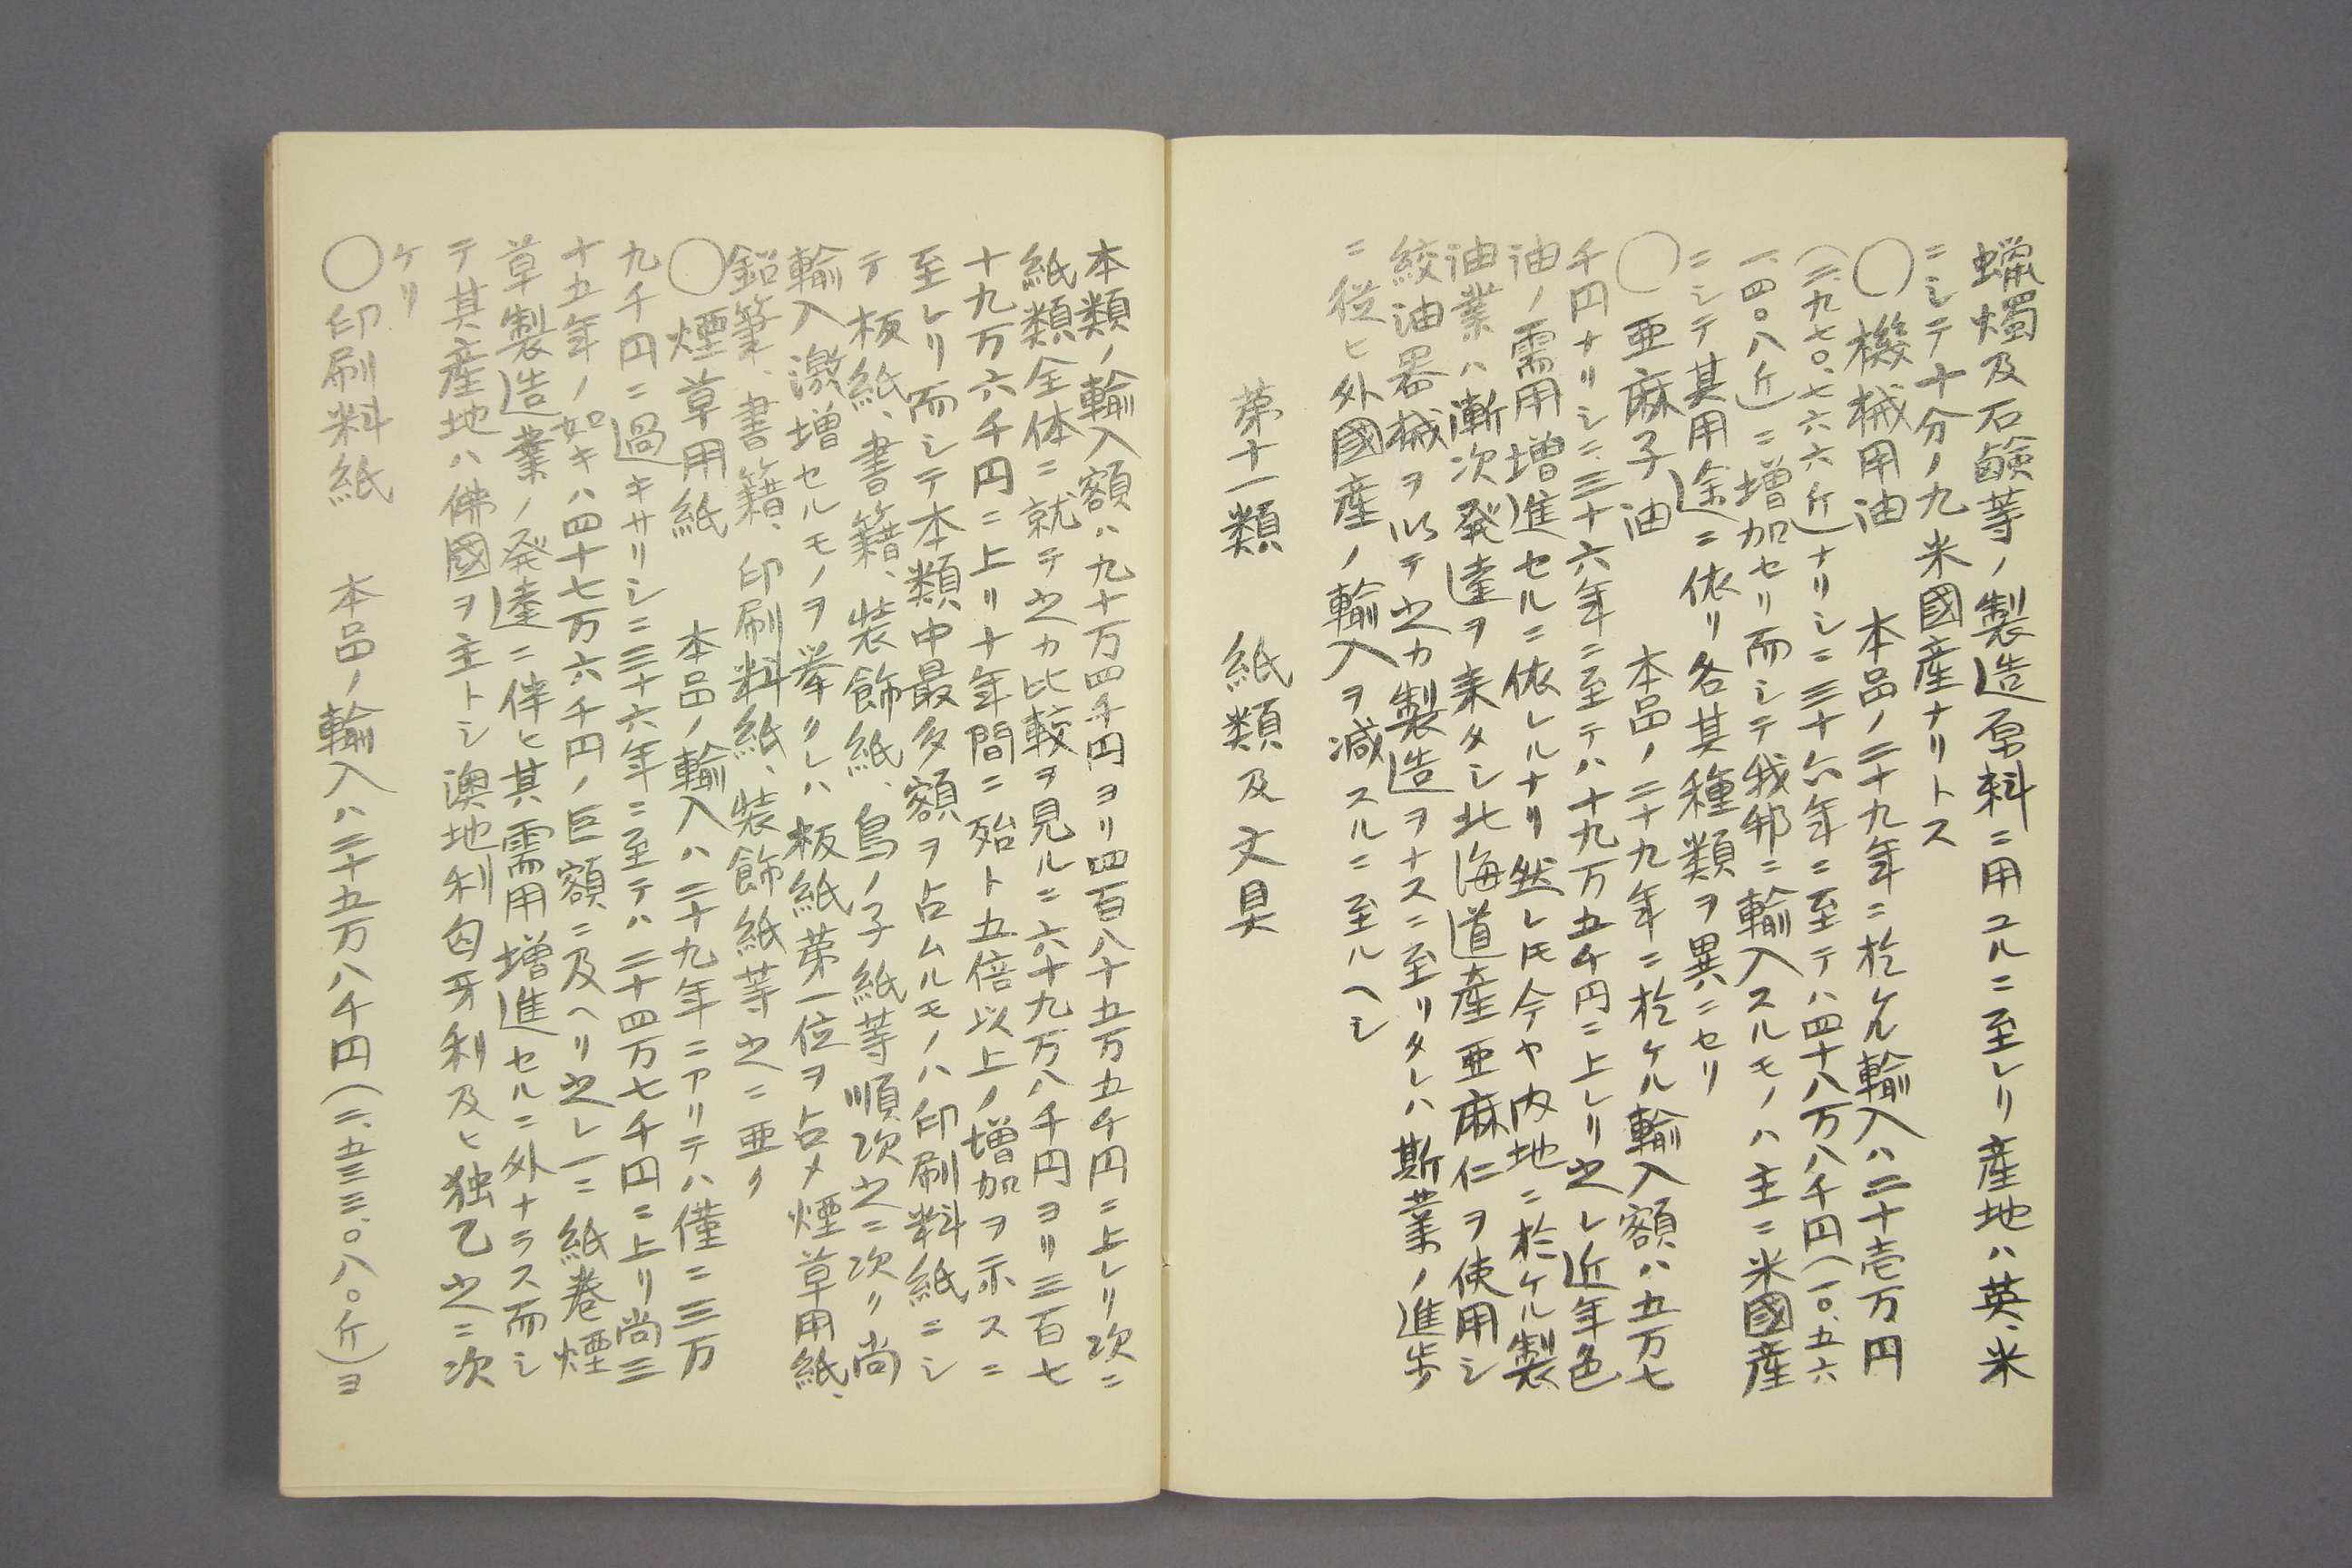 蠟燭及石鹸等ノ製造原料ニ用ユルニ至レリ産地ハ英、米
ニシテ十分ノ九米國産ナリトス
〇機械用油　本品ノ二十九年ニ於ケル輸入ハ二十壱万円
(二、九七〇、七六六斤)ナリシニ三十六年ニ至テハ四十八万八千円(一〇、五六
一、四〇八斤)ニ増加セリ而シテ我邦ニ輸入スルモノハ主ニ米國産
ニシテ其用途ニ依リ各其種類ヲ異ニセリ
〇亜麻子油　本品ノ二十九年ニ於ケル輸入額ハ五万七
千円ナリシニ、三十六年ニ至テハ十九万五千円ニ上レリ之レ近年色
油ノ需用増進セルニ依レルナリ然レ𪜈今ヤ内地ニ於ケル製
油業ハ漸次発達ヲ来タシ北海道産亜麻仁ヲ使用シ
絞油器械ヲ以テ之カ製造ヲナスニ至リタレハ斯業ノ進歩
ニ従ヒ外國産ノ輸入ヲ減スルニ至ルヘシ
第十一類　紙類及文具
本類ノ輸入額ハ九十万四千円ヨリ四百八十五万五千円ニ上レリ次ニ
紙類全体ニ就テ之カ比較ヲ見ルニ六十九万八千円ヨリ三百七
十九万六千円ニ上リ十年間ニ殆ト五倍以上ノ増加ヲ示スニ
至レリ而シテ本類中最多額ヲ占ムルモノハ印刷料紙ニシ
テ板紙、書籍、装飾紙、鳥ノ子紙等順次之ニ次リ尚
輸入激増セルモノヲ挙クレハ板紙第一位ヲ占メ煙草用紙、
鉛筆、書籍、印刷料紙、装飾紙等之ニ亜ク
〇煙草用紙　本品ノ輸入ハ二十九年ニアリテハ僅ニ三万
九千円ニ過キサリシニ三十六年ニ至テハ二十四万七千円ニ上リ尚三
十五年ノ如キハ四十七万六千円ノ巨額ニ及ヘリ之レ一ニ紙巻煙
草製造業ノ発達ニ伴ヒ其需用増進セルニ外ナラス而シ
テ其産地ハ佛國ヲ主トシ澳地利匈牙利及ヒ独乙之ニ次
ケリ
〇印刷料紙　本品ノ輸入ハ二十五万八千円(二、五三三、〇八〇斤)ヨ